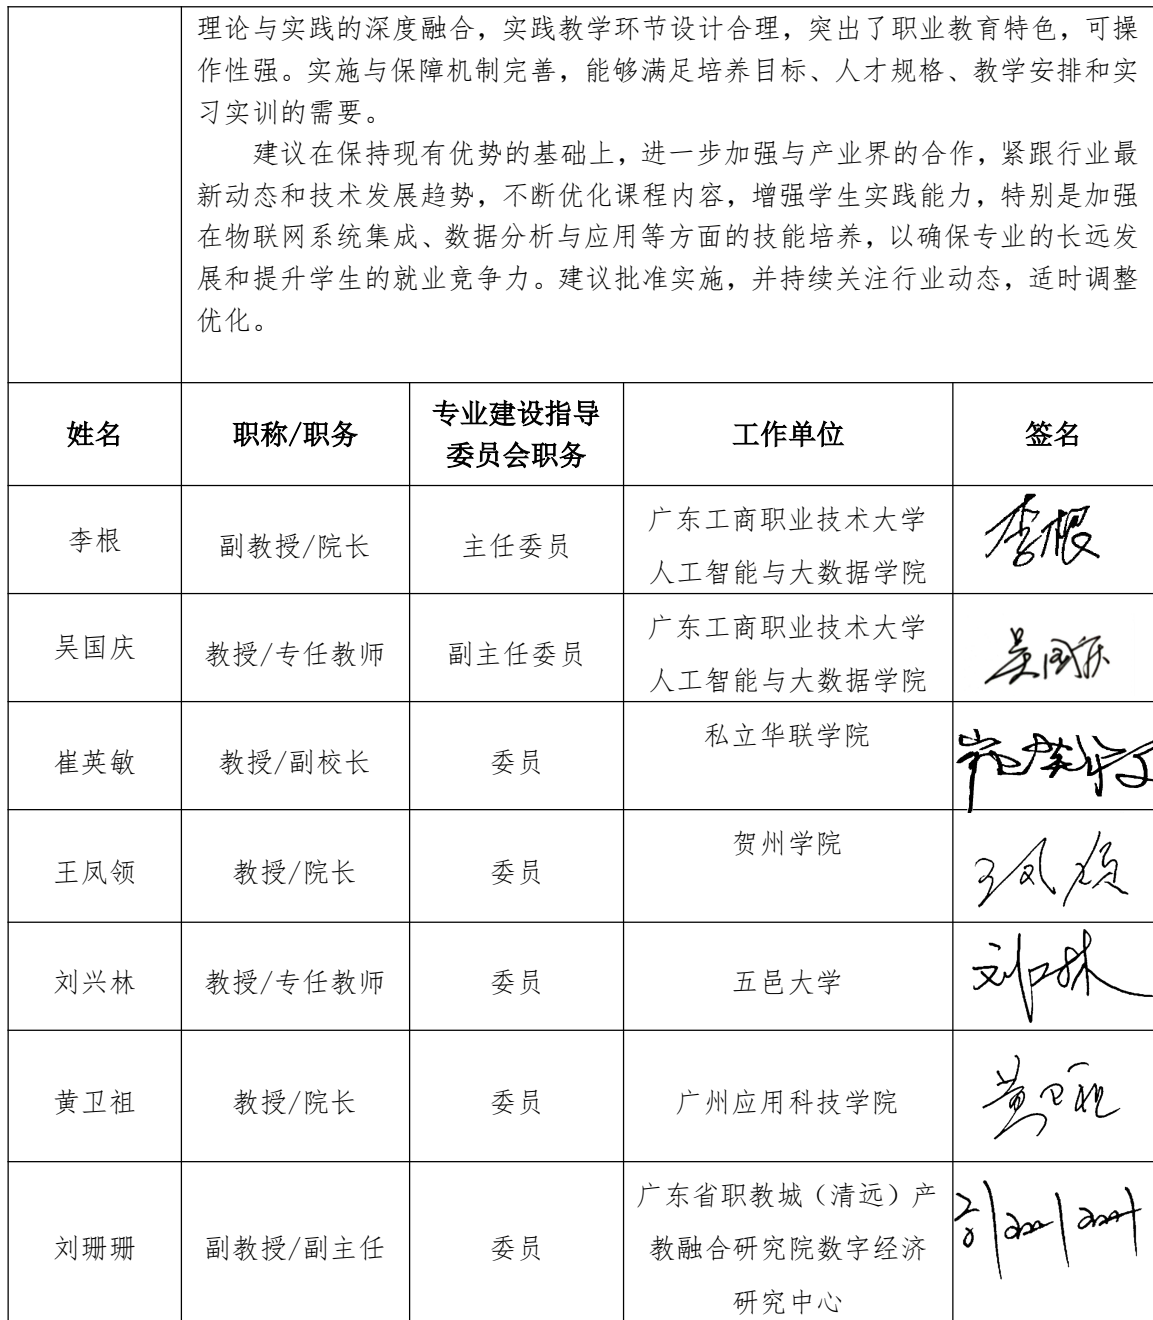 理论与实践的深度融合，实践教学环节设计合理，突出了职业教育特色，可操
作性强。实施与保障机制完善，能够满足培养目标、人才规格、教学安排和实
习实训的需要。
建议在保持现有优势的基础上，进一步加强与产业界的合作，紧跟行业最
新动态和技术发展趋势，不断优化课程内容，增强学生实践能力，特别是加强
在物联网系统集成、数据分析与应用等方面的技能培养，以确保专业的长远发
展和提升学生的就业竞争力。建议批准实施，并持续关注行业动态，适时调整
优化。
姓名 职称/职务 专业建设指导 工作单位 签名
委员会职务
李根 副教授/院长 主任委员 广东工商职业技术大学 李根
人工智能与大数据学院
吴国庆 教授/专任教师 副主任委员 广东工商职业技术大学 吴国庆
人工智能与大数据学院
崔英敏 教授/副校长 委员 私立华联学院 崔英敏
王凤领 教授/院长 委员 贺州学院 王凤领
刘兴林 教授/专任教师 委员 五邑大学 刘兴林
黄卫祖 教授/院长 委员 广州应用科技学院 黄卫祖
刘珊珊 副教授/副主任 委员 广东省职教城（清远）产 刘珊珊
教融合研究院数字经济
研究中心